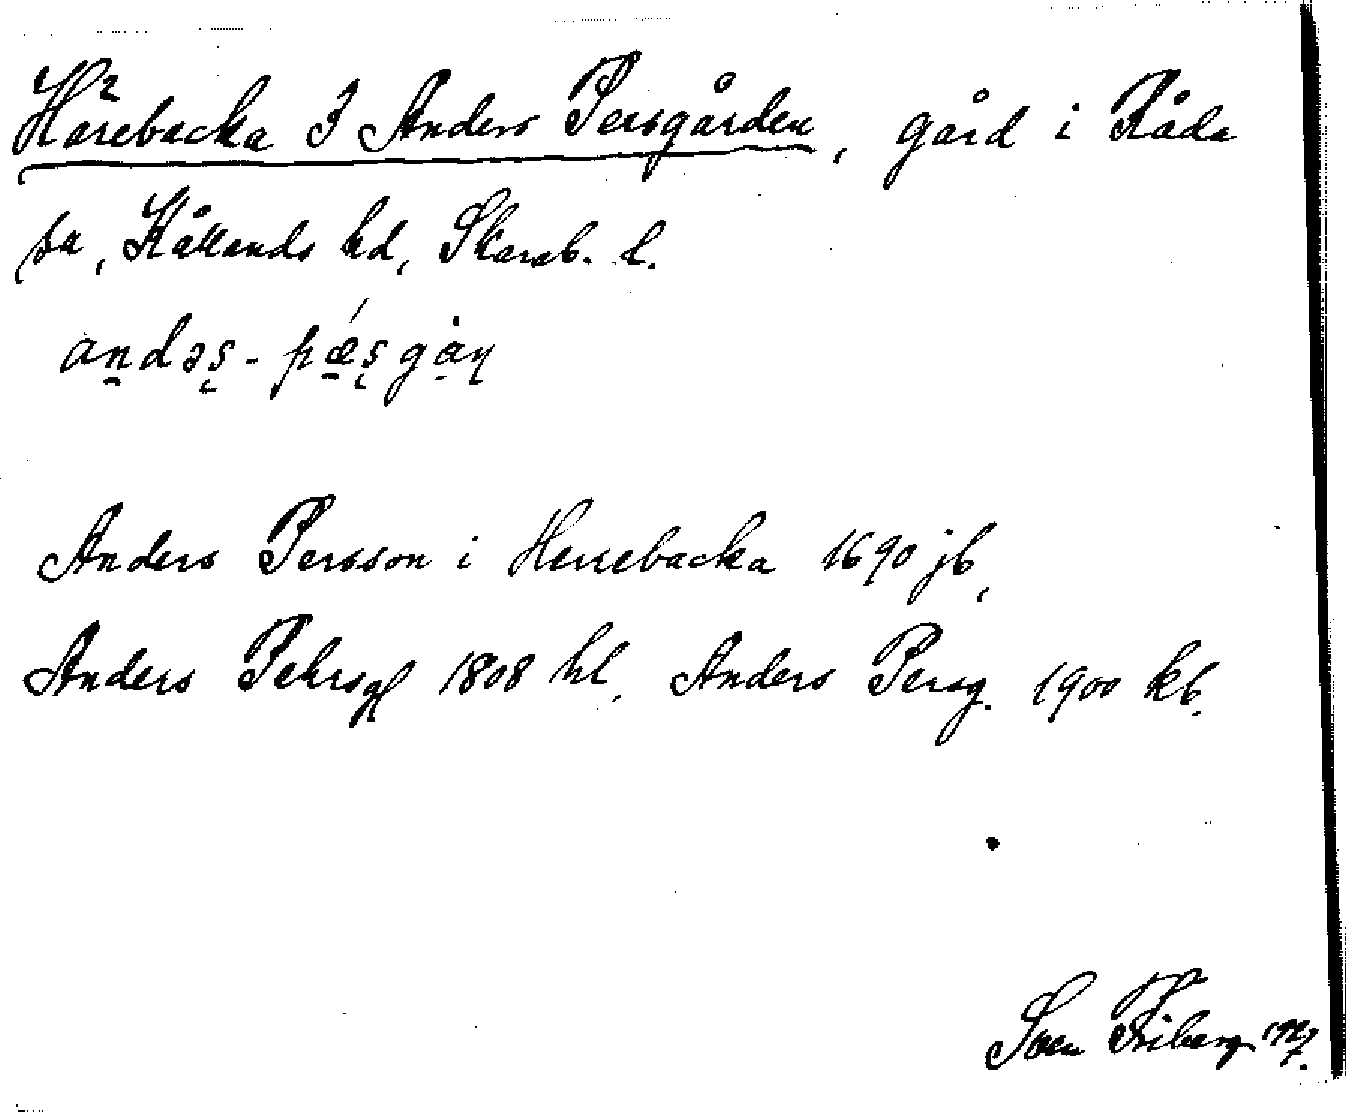 Härebacka 3 Anders Persgården, gård i Råda
sn, Kållands hd, Skarab. l.
andəʂ-pǽʂgån
Anders Persson i Herrebacka 1690 jb,
Anders Pehrsgd 1808 hl, Anders Persg. 1900 kb.
Sven Friberg